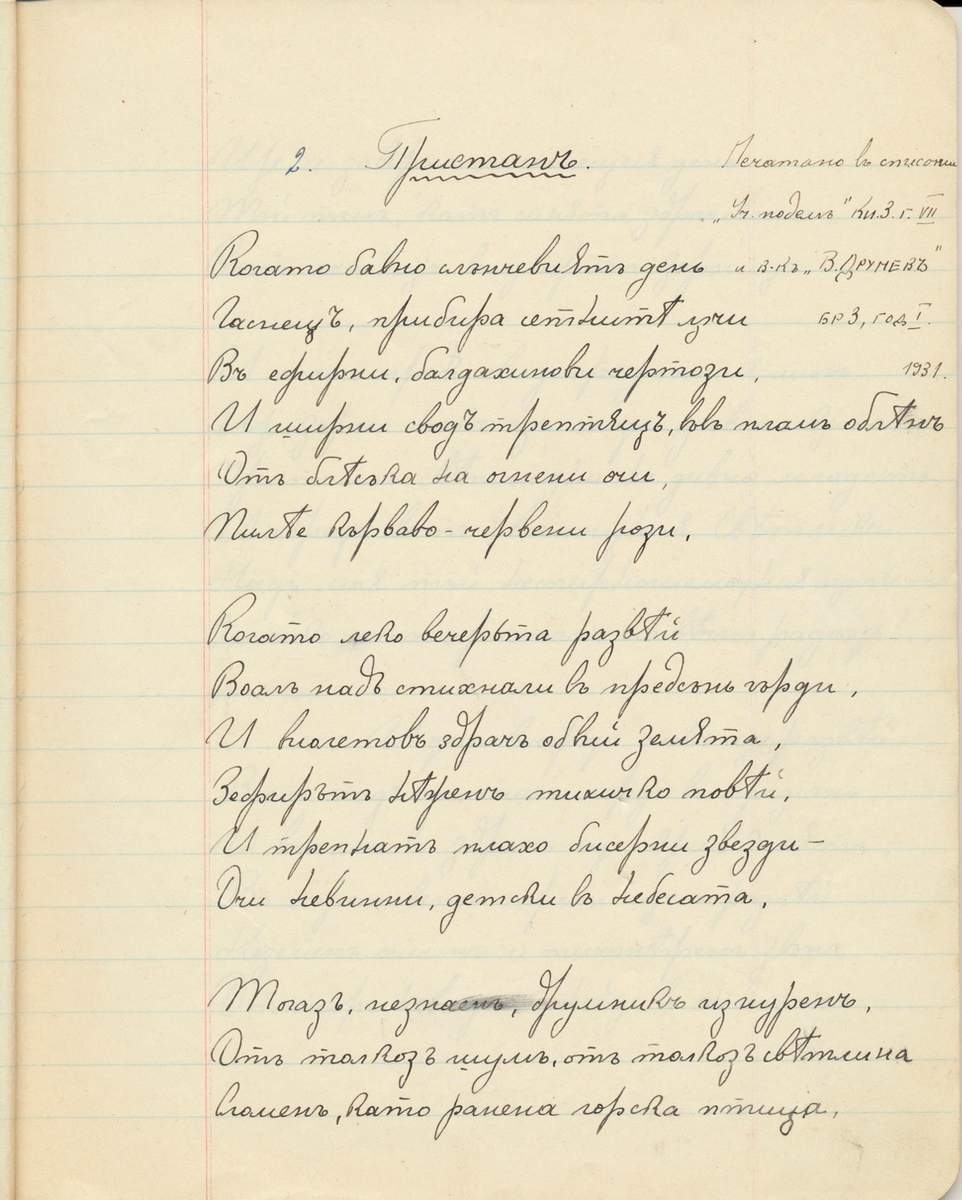 2. Пристанъ.
Печатано въ списание
„Уч. подемъ" Кн.3. г. VII
и в-къ „В. Друмевъ"
бр 3, год I.
1931.
Когато бавно слънчевиятъ день
Гаснещъ, прибира сетнитѣ лъчи
Въ ефирни, балдахинови чертози,
И ширни сводъ трептящъ, въвъ пламъ облѣнъ
Отъ блѣсъка на огнени очи,
Пилѣе кърваво-червени рози,
Когато леко вечерьта развѣй
Воалъ надъ стихнали въ предсънь гърди,
И виолетовъ здрачъ обвий земята,
Зефирътъ нѣженъ тихичко повѣй,
И трепнатъ плахо бисерни звезди –
Очи невинни, детски въ небесата,
Тогазъ, незнаенъ, друмникъ изнуренъ,
Отъ толкозъ шумъ, отъ толкозъ свѣтлина
Сломенъ, като ранена горска птица,